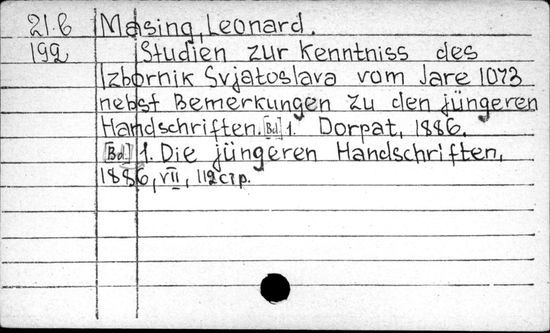 21.6 Masing, Leonard.
192 Studien zur Kenntniss des
Izbornik Svjatoslava vom Jare 1073
nebst Bemerkungen zu den jüngeren
Handschriften. [Bd] 1. Dorpat, 1886.
[Bd] 1. Die jüngeren Handschriften,
1886, VII, 112 стр.